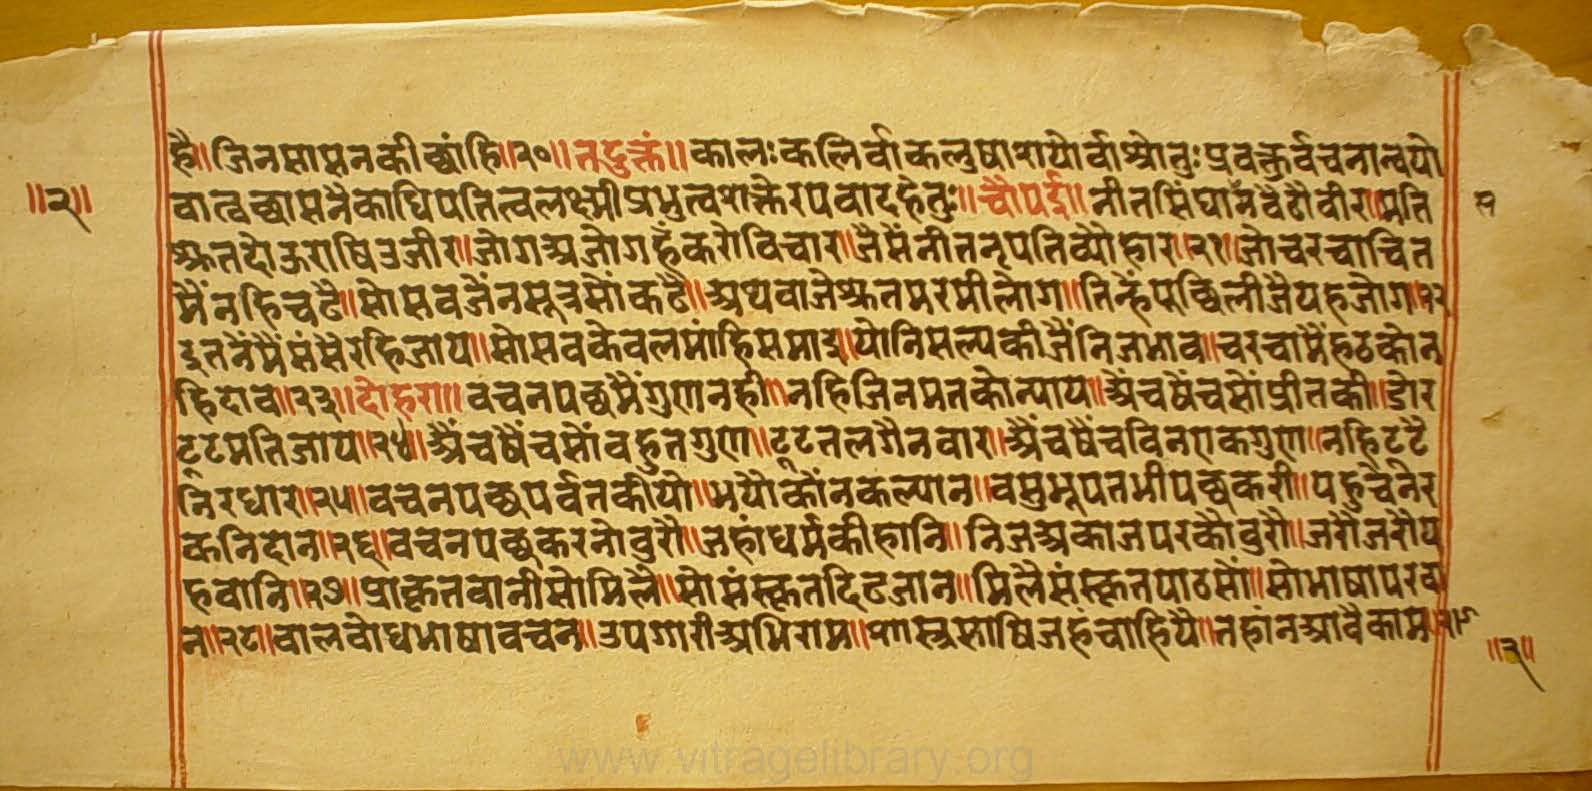 है॥जिनसासनकीछांहि॥२०॥तदुक्तं॥कालःकलिर्वाकलुषाशयोवाश्रोतुःप्रवक्तुर्वचनान्वयो
॥२॥
वात्वच्छासनैकाधिपतित्वलक्ष्मीप्रभुत्वशक्तेरपवादहेतुः॥चौपई॥नीतसिंघानवैठौवीर॥मति
श्रुतदोऊराषिउजीर॥जोगअजोगहँकरोविचार॥जैसेंनीतनृपतिव्यौहार॥२१॥जोचरचाचित
मैंनहिचढै॥सोसवजैंनसूत्रसोंकढै॥अथवाजेश्रुतमरमीलोग॥तिन्हैंपूछिलीजैयहजोग॥२२
इतनैंमैंसंसैरहिजाय॥सोसवकेवलमांहिसमाइ॥योनिसल्यकीजैंनिजभाव॥चरचामैंहठकोन
हिदाव॥२३॥दोहरा॥वचनपछमैंगुणनही॥नहिजिनमतकोन्याय॥अैंचषैंचसोंप्रीतकी॥डोर
टूटमतिजाय॥२४॥अैंचषैंचसोंवहुतगुण॥टूटतलगैनवार॥अैंचषैंचविनएकगुण॥नहिटटै
निरधार॥२५॥वचनपछपर्वतकीयो॥भयौकोंनकल्यान॥वसुभूपतभीपछकरी॥पहुचैनर
कनिदान॥२६॥वचनपछकरनोवुरौ॥जहांधर्मकीहानि॥निजअकाजपरकौवुरौ॥जरौजरौय
हवानि॥२७॥प्राकृतवानीसोमिलै॥सोसंस्कृतदिढजान॥मिलैसंस्कृतपाठसों॥सोभाषापरवा
न॥२८॥वालवोधभाषावचन॥उपगारीअभिराम॥शास्त्रसाषिजहंचाहियै॥तहांनआवैकाम॥२९
॥३॥